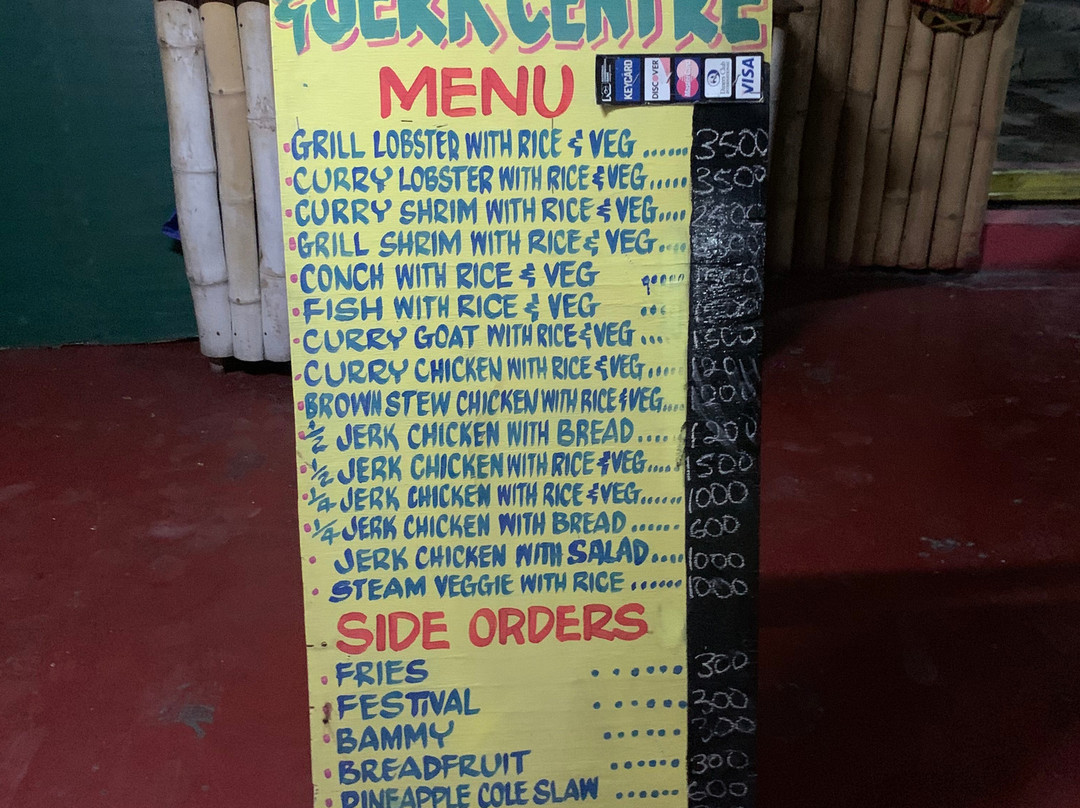 & JERK CENTRE
MENU
KEYCARD DISCOVER VISA
GRILL LOBSTER WITH RICE & VEG ...... 3500
CURRY LOBSTER WITH RICE & VEG..... 3500
CURRY SHRIM WITH RICE & VEG.... 2500
GRILL SHRIM WITH RICE & VEG....
CONCH WITH RICE & VEG .....
FISH WITH RICE & VEG ...
CURRY GOAT WITH RICE & VEG .... 1500
CURRY CHICKEN WITH RICE & VEG....
BROWN STEW CHICKEN WITH RICE & VEG....
1/2 JERK CHICKEN WITH BREAD .... 1200
1/2 JERK CHICKEN WITH RICE & VEG.... 1500
1/4 JERK CHICKEN WITH RICE & VEG...... 1000
1/4 JERK CHICKEN WITH BREAD ...... 600
JERK CHICKEN WITH SALAD.... 1000
STEAM VEGGIE WITH RICE ...... 1000
SIDE ORDERS
FRIES ...... 300
FESTIVAL ...... 300
BAMMY ...... 300
BREADFRUIT ...... 300
PINEAPPLE COLE SLAW ......